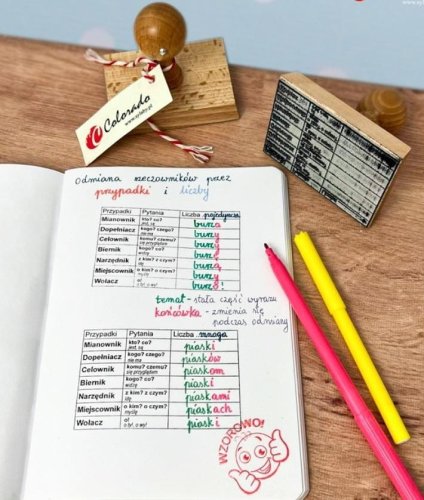 Colorado
www.xylaby.pl
odmiana rzeczowników przez
przypadki i liczby
Przypadki Pytania Liczba pojedyncza
Mianownik kto? co? jest, są burza
Dopełniacz kogo? czego? nie ma burzy
Celownik komu? czemu? się przyglądam burzy
Biernik kogo? co? widzę burzę
Narzędnik z kim? z czym? idę burzą
Miejscownik o kim? o czym? myślę burzy
Wołacz o! burzo!
temat - stała część wyrazu
końcówka - zmienia się
podczas odmiany
Przypadki Pytania Liczba mnoga
Mianownik kto? co? jest, są piaski
Dopełniacz kogo? czego? nie ma piasków
Celownik komu? czemu? się przyglądam piaskom
Biernik kogo? co? widzę piaski
Narzędnik z kim? z czym? idę piaskami
Miejscownik o kim? o czym? myślę piaskach
Wołacz o! o ty!, o wy! piaski
WZOROWO!